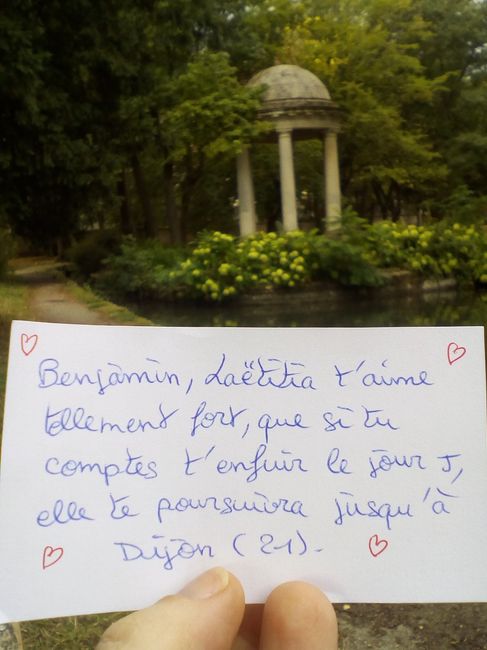 Benjamin, Laëtitia t'aime
tellement fort, que si tu
comptes t'enfuir le jour J,
elle te poursuivra jusqu'à
Dijon (21).